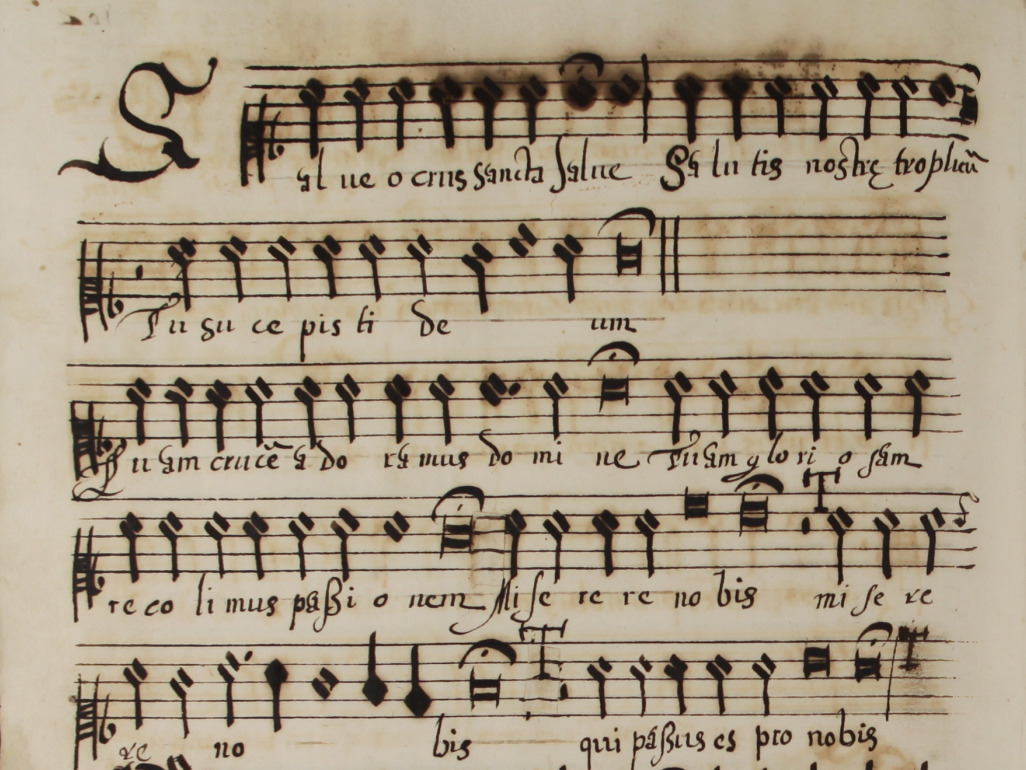 Sal ue o crus sancta salue Sa lu tis nostrę trophęũ
Tu su ce pis ti de um
Tu am crucē a do ra mus do mi ne Tu am g lo ri o sam
re co li mus paßi o nem Mi se re re no bis mi se re
re no bis qui paßus es pro nobis